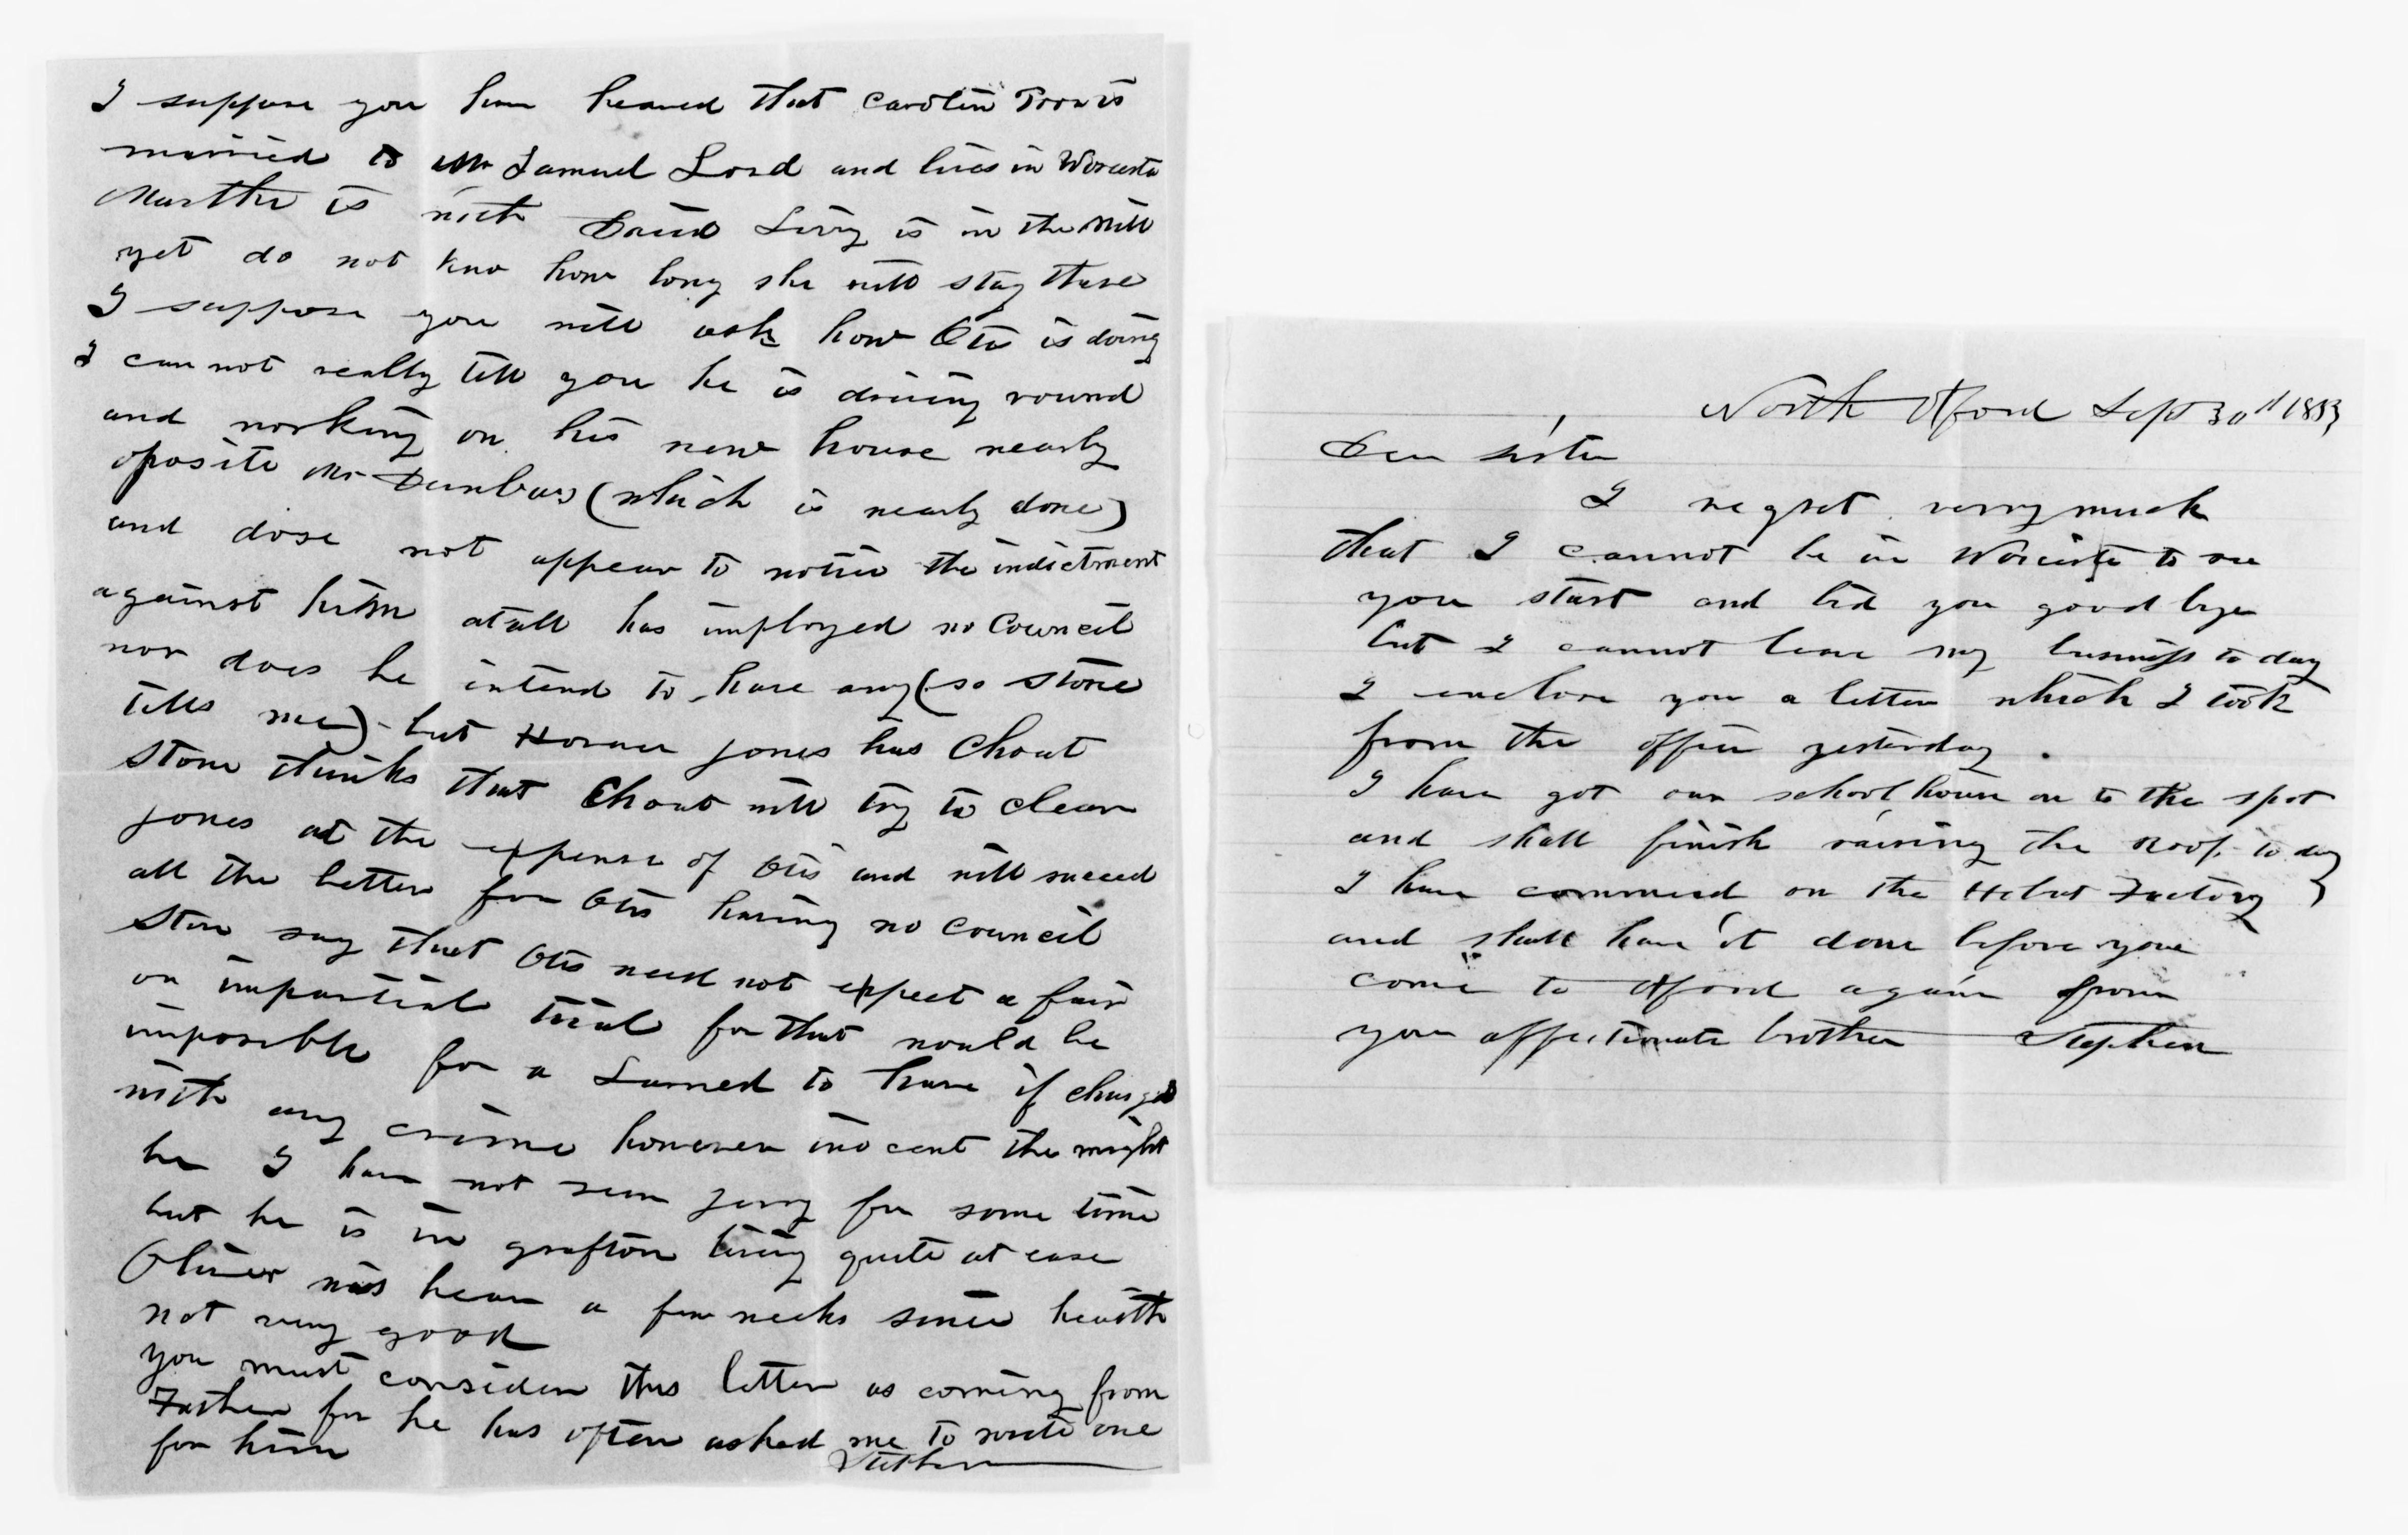 I suppose you have heared that Carolin Poor is
married to Mr Samuel Lord and lives in Worcester
Marthe is with David Livry is in the Mill
yet do not kno how long she will stay there
I suppose you will ask how Otis is doing
I can not really tell you he is driving round
and working on his new house nearly
oposite Mr Dunbars (which is nearly done)
and dose not appear to notice the indictment
against him atall has imployed no Council
nor does he intend to have any (so Stone
tells me) but Horace Jones has Choat
Stone thinks that Choat will try to clear
Jones at the expense of Otis and will succeed
all the better for Otis having no council
Stone say that Otis need not expect a fair
or impartial trial for that would be
imposible for a Larned to have if charged
with any crime however inocent the might
be I have not seen Jerry for some time
but he is in grafton living quite at ease
Oliver was hear a few weeks since health
not very good
you must consider this letter as coming from
Father for he has often asked me to write one
for him
Stephen
North Oxford Sept 30th 1853
Dear Sister
I regret verry much
that I cannot be in Worcester to see
you start and bid you good bye
but I cannot leave my business to day
I enclose you a letter which I took
from the office yesterday.
I have got our school house on to the spot
and shall finish raising the Roof to day
I have commenced on the Hebut Factory
and shall have it done before you
come to Oxford again from
your affectionate brother Stephen